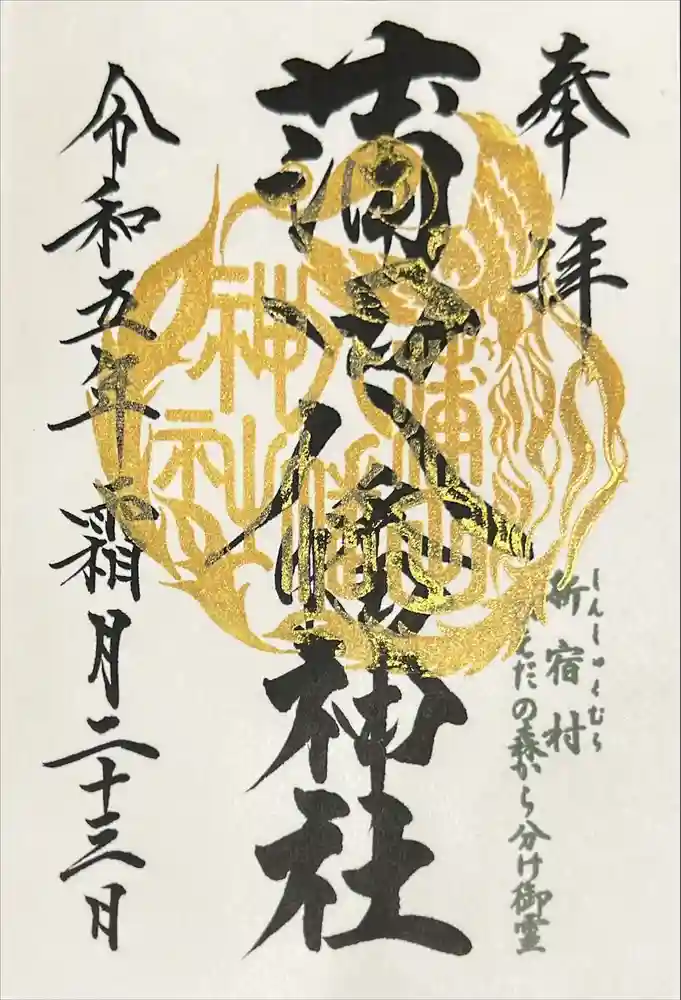 奉拝
しんしゅくむら
新宿村
ひえだの森から分け御霊
蒲田八幡神社
蒲田
八幡
神社
令和五年霜月二十三日